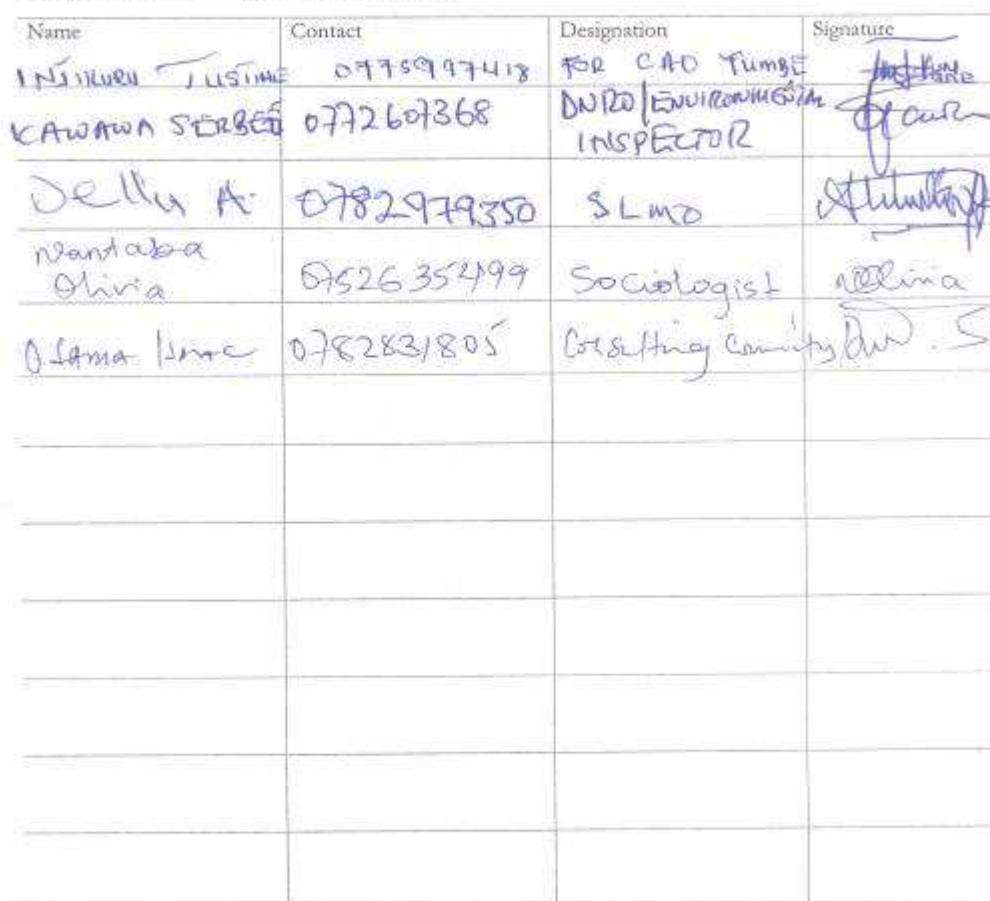 Name Contact Designation Signature
INJIKURU JUSTINE 0775997418 FOR CAO YUMBE
KAWAWA SERBEE 0772607368 DNRO/ENVIRONMENTAL
INSPECTOR
Jelly A. 0782979350 SLMO
Nantaba
Olivia 0752635499 Sociologist Olivia
Osama Isaac 0782831805 Consulting